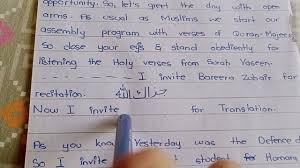 opportunity. So, let's greet the day with open
arms. As usual as Muslims we start our
assembly program with verses of Quran-Majeed
So close your eyes & stand obediently for
listening the Holy verses from Surah Yaseen.
---------- I invite Bareera Zubair for
recitation.
Now I invite for Translation.
As you know Yesterday was the Defence